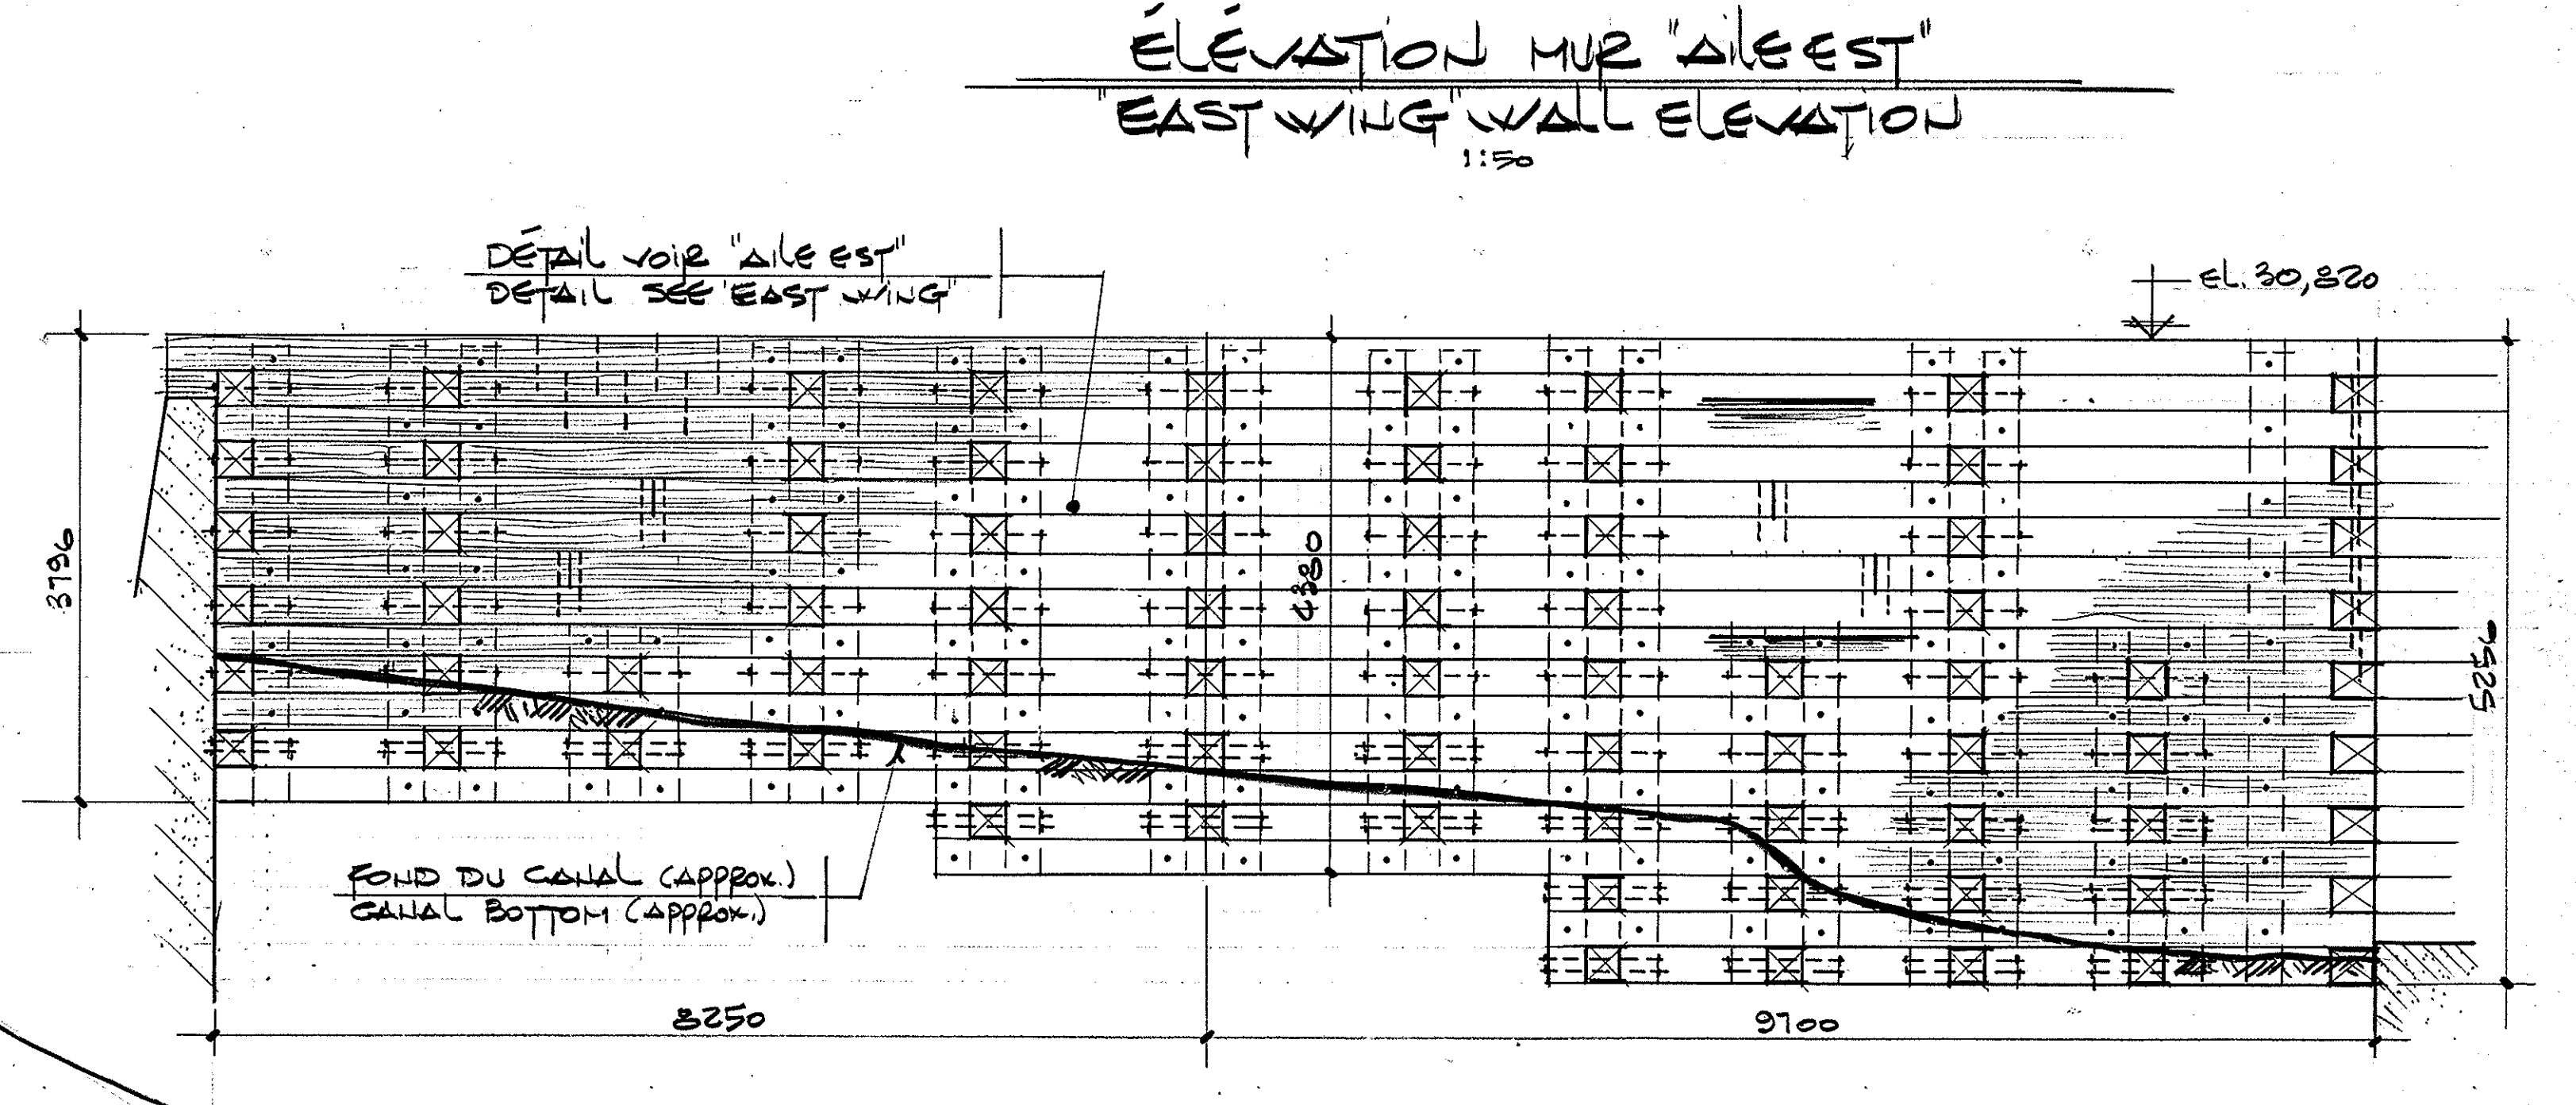 ÉLÉVATION MUR "AILE EST"
"EAST WING" WALL ELEVATION
1:50
DÉTAIL VOIR "AILE EST"
DETAIL SEE "EAST WING"
EL. 30,820
3796
4380
5256
FOND DU CANAL (APPROX.)
CANAL BOTTOM (APPROX.)
8250
9700